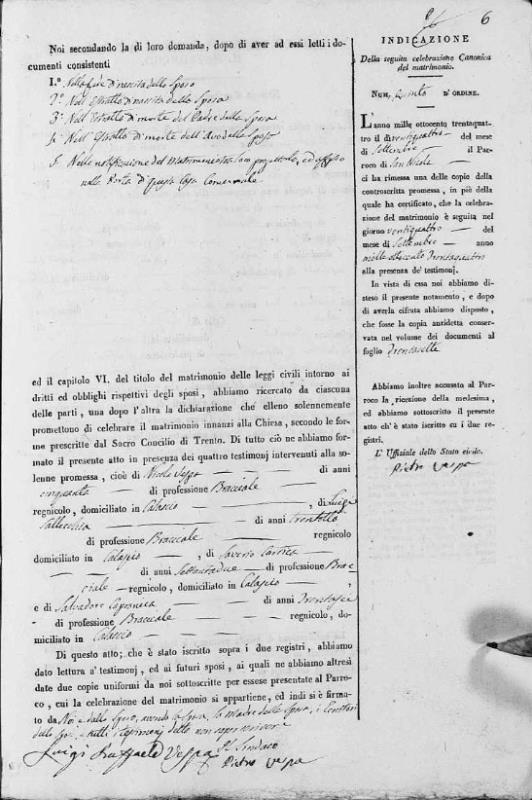 6
Noi secondando la di loro domanda, dopo di aver ad essi letti i do-
cumenti consistenti
1.° Nell' di nascita dello Sposo
2.° Nell' Estratto di nascita della Sposa
3.° Nell' Estratto di morte del Padre della Sposa
4. Nell' Estratto di morte dell' Avo dello Sposo
5. Nella notificazione del Matrimonio ed affisso
nella Porta di questa Casa Comunale
ed il capitolo VI. del titolo del matrimonio delle leggi civili intorno ai
dritti ed obblighi rispettivi degli sposi, abbiamo ricercato da ciascuna
delle parti, una dopo l'altra la dichiarazione che elleno solennemente
promettono di celebrare il matrimonio innanzi alla Chiesa, secondo le for-
me prescritte dal Sacro Concilio di Trento. Di tutto ciò ne abbiamo for-
mato il presente atto in presenza dei quattro testimonj intervenuti alla so-
lenne promessa, cioè di Nicola di anni
cinquanta di professione Bracciale
regnicolo, domiciliato in Calascio , di Luigi
di anni trentotto
di professione Bracciale regnicolo
domiciliato in Calascio , di Saverio
di anni Settantadue di professione Brac
ciale regnicolo, domiciliato in Calascio ,
e di Salvadore di anni Trentasei
di professione Bracciale regnicolo, do-
miciliato in Calascio
Di questo atto; che è stato iscritto sopra i due registri, abbiamo
dato lettura a' testimonj, ed ai futuri sposi, ai quali ne abbiamo altresì
date due copie uniformi da noi sottoscritte per essere presentate al Parro-
co, cui la celebrazione del matrimonio si appartiene, ed indi si è firma-
to da Noi e dallo Sposo, avendo la Sposa, la Madre dello Sposo, i
e tutti i testimonj detto non saper scrivere
Luigi Raffaele Vespa Il Sindaco
Pietro Vespa
INDICAZIONE
Della seguita celebrazione Canonica
del matrimonio.
NUM. quinto D' ORDINE.
L'anno mille ottocento trentaquat-
tro il dì ventiquattro del mese
di Settembre il Par-
roco di San
ci ha rimessa una delle copie della
controscritta promessa, in piè della
quale ha certificato, che la celebra-
zione del matrimonio è seguita nel
giorno ventiquattro del
mese di Settembre anno
mille ottocento trentaquattro
alla presenza de' testimonj.
In vista di essa noi abbiamo di-
steso il presente notamento, e dopo
di averla cifrata abbiamo disposto,
che fosse la copia antidetta conser-
vata nel volume dei documenti al
foglio Trentasette
Abbiamo inoltre accusato al Par-
roco la ricezione della medesima,
ed abbiamo sottoscritto il presente
atto ch'è stato iscritto su i due re-
gistri.
L' Uffiziale dello Stato civile.
Pietro Vespa